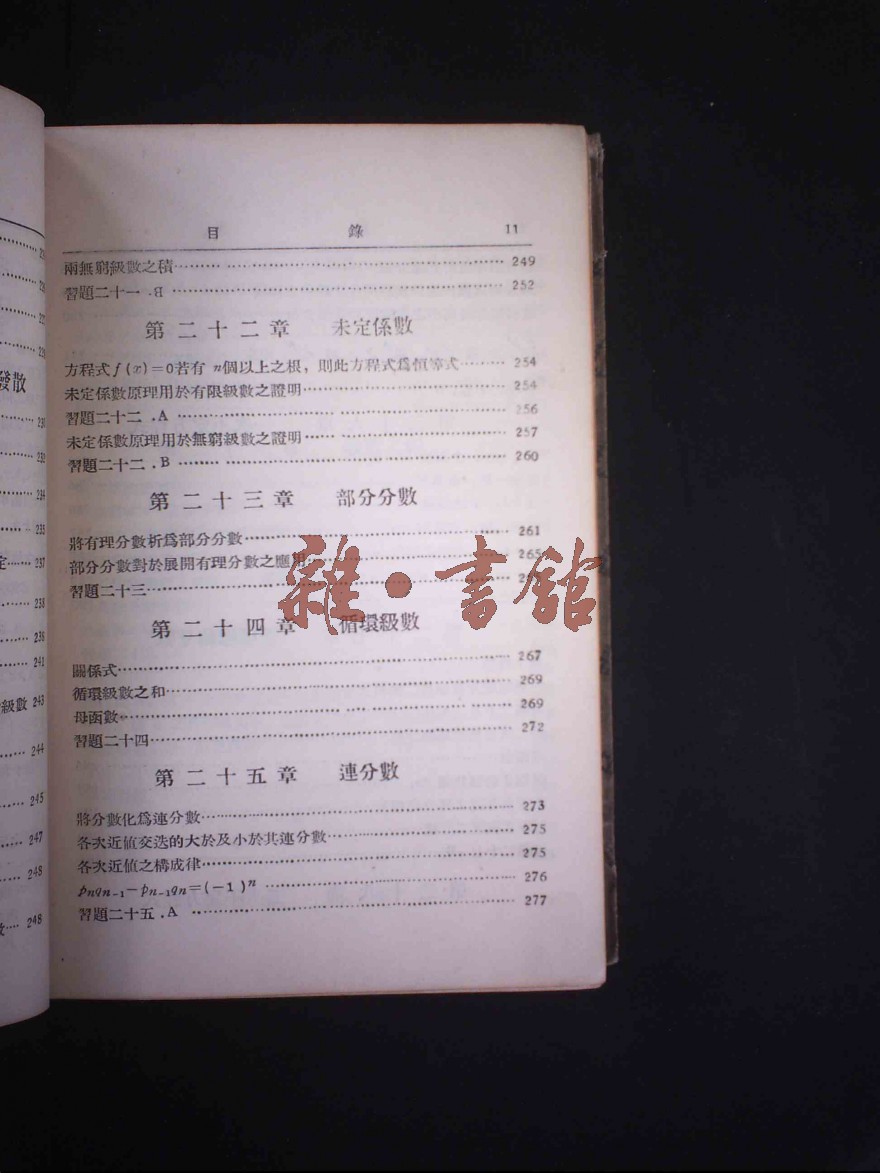 目 錄 11
兩無窮級數之積 249
習題二十一.B 252
第二十二章 未定係數
方程式f(x)=0若有 n個以上之根，則此方程式爲恒等式 254
未定係數原理用於有限級數之證明 254
習題二十二.A 256
未定係數原理用於無窮級數之證明 257
習題二十二.B 260
第二十三章 部分分數
將有理分數析爲部分分數 261
部分分數對於展開有理分數之應用 265
習題二十三
第二十四章 循環級數
關係式 267
循環級數之和 269
母函數 269
習題二十四 272
第二十五章 連分數
將分數化爲連分數 273
各次近値交迭的大於及小於其連分數 275
各次近値之構成律 275
pnqn-1−pn-1qn=(−1)n 276
習題二十五.A 277
雜·書館
發散
230
232
234
235
定 237
238
238
241
級數 243
244
245
247
248
248